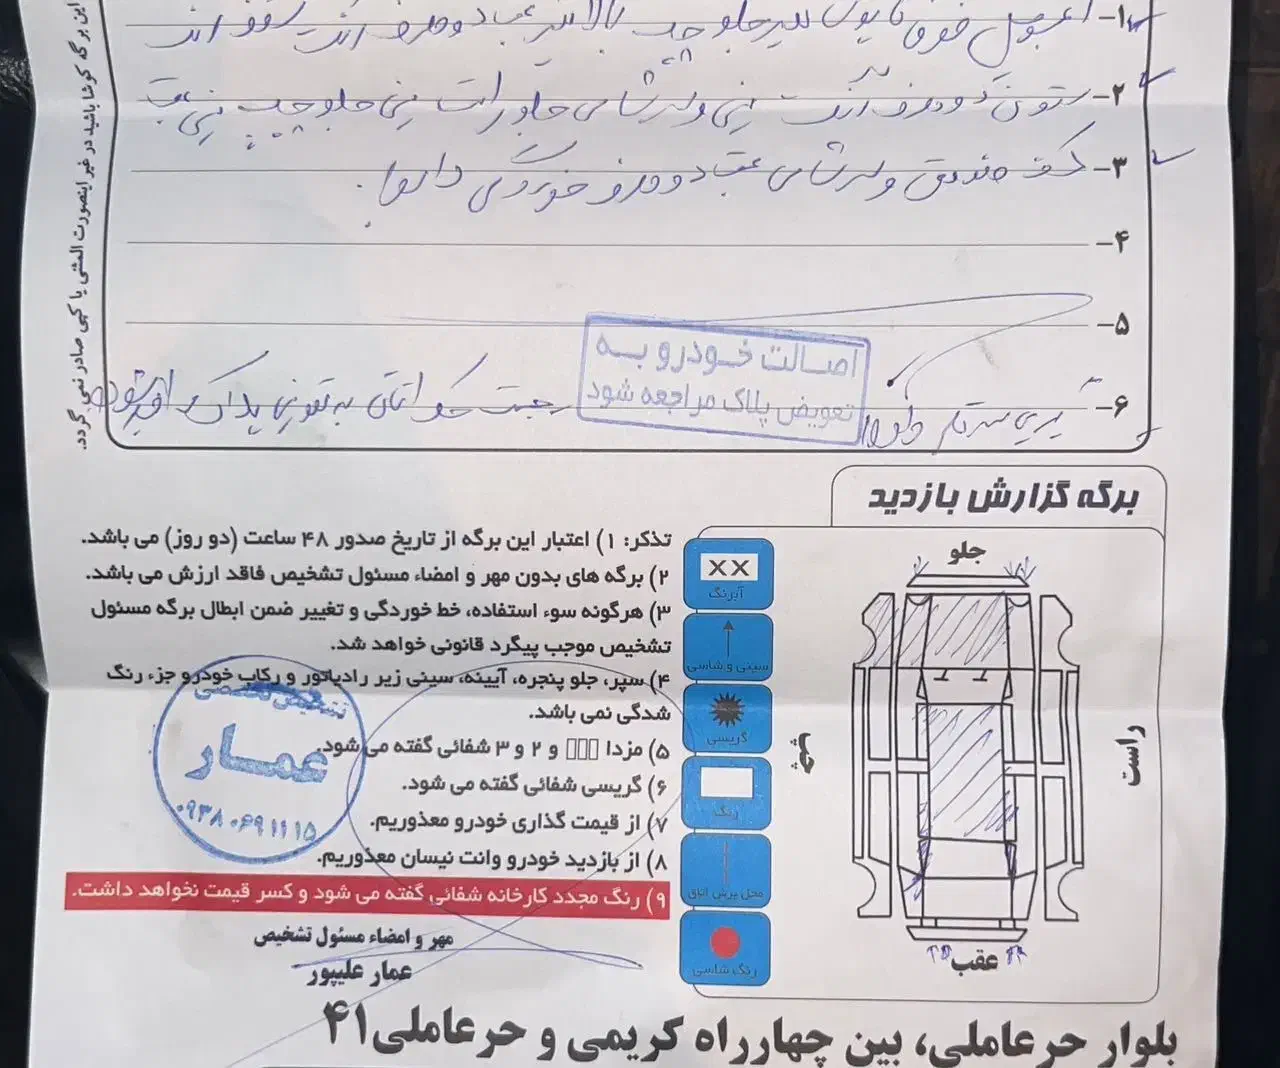 ۱-
۲- ستون دو طرف آند سینی و سرشاسی جلو راست سینی جلو چپ
۳- کف صندوق و سرشاسی عقب دو طرف خوردگی دارد.
۴-
۵-
۶-
اصالت خودرو به
تعویض پلاک مراجعه شود
این برگه کوشا باشید در غیر اینصورت المثنی یا کپی صادر نمی گردد.
برگه گزارش بازدید
جلو
راست
عقب
XX
آبرنگ
سینی و شاسی
گریسی
رنگ
محل برش اتاق
رنگ شاسی
تذکر: ۱) اعتبار این برگه از تاریخ صدور ۴۸ ساعت (دو روز) می باشد.
۲) برگه های بدون مهر و امضاء مسئول تشخیص فاقد ارزش می باشد.
۳) هرگونه سوء استفاده، خط خوردگی و تغییر ضمن ابطال برگه مسئول
تشخیص موجب پیگرد قانونی خواهد شد.
۴) سپر، جلو پنجره، آیینه، سینی زیر رادیاتور و رکاب خودرو جزء رنگ
شدگی نمی باشد.
۵) مزدا و ۲ و ۳ شفائی گفته می شود.
۶) گریسی شفائی گفته می شود.
۷) از قیمت گذاری خودرو معذوریم.
۸) از بازدید خودرو وانت نیسان معذوریم.
۹) رنگ مجدد کارخانه شفائی گفته می شود و کسر قیمت نخواهد داشت.
تشخیص تخصصی
عمار
۰۹۳۸۰۶۹۱۱۱۵
مهر و امضاء مسئول تشخیص
عمار علیپور
بلوار حرعاملی، بین چهارراه کریمی و حرعاملی۴۱